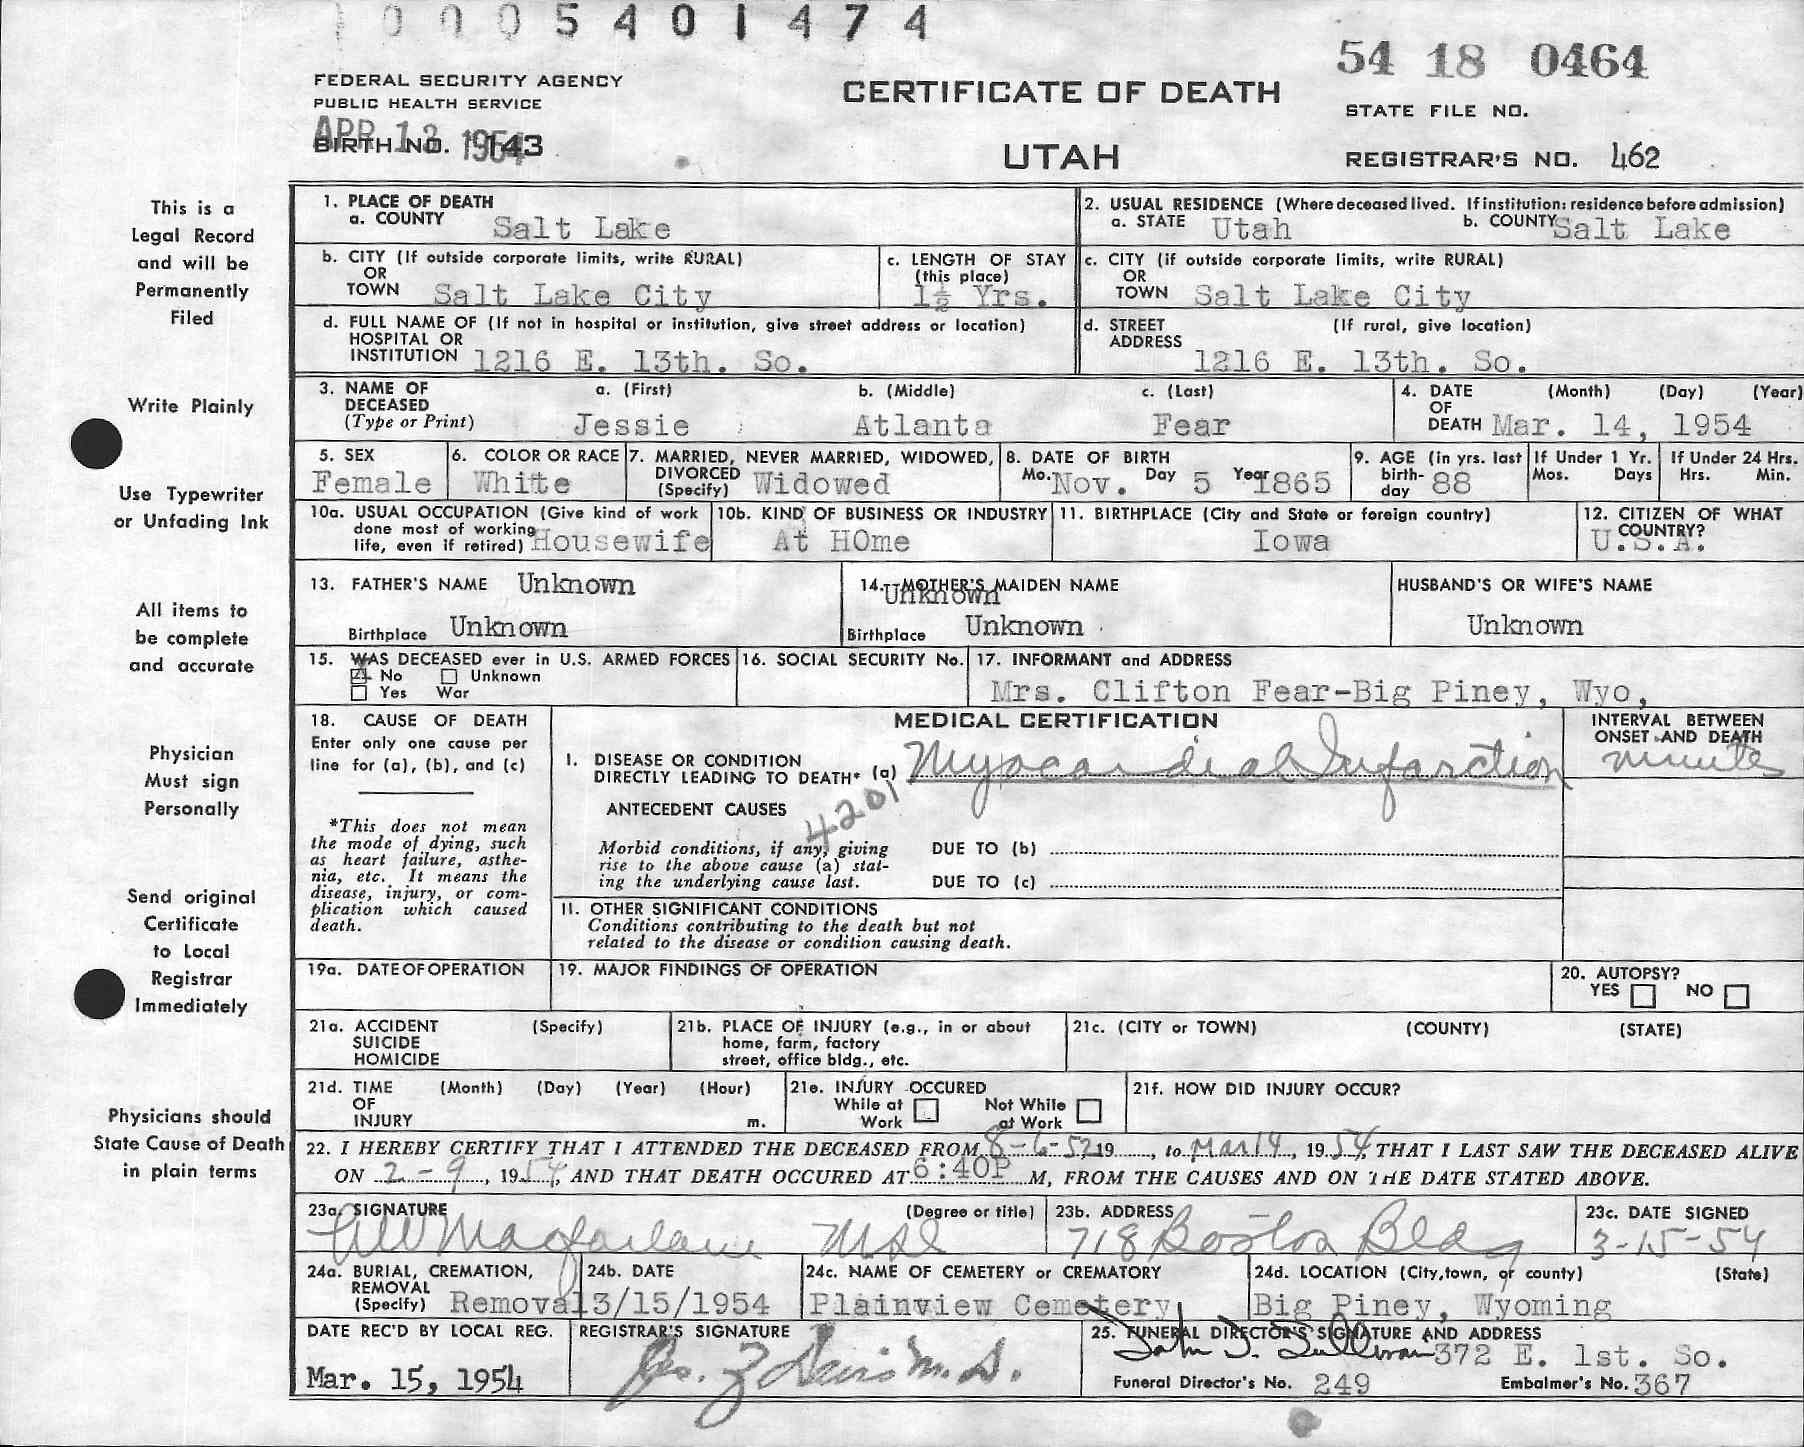 10005401474
54 18 0464
FEDERAL SECURITY AGENCY
PUBLIC HEALTH SERVICE
CERTIFICATE OF DEATH
STATE FILE NO.
APR 13 1954
BIRTH NO. 143
UTAH
REGISTRAR'S NO. 462
This is a
Legal Record
and will be
Permanently
Filed
Write Plainly
Use Typewriter
or Unfading Ink
All items to
be complete
and accurate
Physician
Must sign
Personally
Send original
Certificate
to Local
Registrar
Immediately
Physicians should
State Cause of Death
in plain terms
1. PLACE OF DEATH
a. COUNTY Salt Lake
2. USUAL RESIDENCE (Where deceased lived. If institution: residence before admission)
a. STATE Utah b. COUNTY Salt Lake
b. CITY (If outside corporate limits, write RURAL)
OR
TOWN Salt Lake City
c. LENGTH OF STAY
(this place)
1½ Yrs.
c. CITY (if outside corporate limits, write RURAL)
OR
TOWN Salt Lake City
d. FULL NAME OF (If not in hospital or institution, give street address or location)
HOSPITAL OR
INSTITUTION 1216 E. 13th. So.
d. STREET (If rural, give location)
ADDRESS
1216 E. 13th. So.
3. NAME OF a. (First) b. (Middle) c. (Last)
DECEASED
(Type or Print) Jessie Atlanta Fear
4. DATE (Month) (Day) (Year)
OF
DEATH Mar. 14, 1954
5. SEX
Female
6. COLOR OR RACE
White
7. MARRIED, NEVER MARRIED, WIDOWED,
DIVORCED
(Specify) Widowed
8. DATE OF BIRTH
Mo. Nov. Day 5 Year 1865
9. AGE (in yrs. last
birth-
day 88
If Under 1 Yr.
Mos. Days
If Under 24 Hrs.
Hrs. Min.
10a. USUAL OCCUPATION (Give kind of work
done most of working
life, even if retired) Housewife
10b. KIND OF BUSINESS OR INDUSTRY
At HOme
11. BIRTHPLACE (City and State or foreign country)
Iowa
12. CITIZEN OF WHAT
COUNTRY?
U.S.A.
13. FATHER'S NAME Unknown
Birthplace Unknown
14. MOTHER'S MAIDEN NAME
Unknown
Birthplace Unknown
HUSBAND'S OR WIFE'S NAME
Unknown
15. WAS DECEASED ever in U.S. ARMED FORCES
No Unknown
Yes War
16. SOCIAL SECURITY No.
17. INFORMANT and ADDRESS
Mrs. Clifton Fear-Big Piney, Wyo,
18. CAUSE OF DEATH
Enter only one cause per
line for (a), (b), and (c)
*This does not mean
the mode of dying, such
as heart failure, asthe-
nia, etc. It means the
disease, injury, or com-
plication which caused
death.
MEDICAL CERTIFICATION
INTERVAL BETWEEN
ONSET AND DEATH
I. DISEASE OR CONDITION
DIRECTLY LEADING TO DEATH* (a) Myocardial Infarction
minutes
4201
ANTECEDENT CAUSES
Morbid conditions, if any, giving
rise to the above cause (a) stat-
ing the underlying cause last.
DUE TO (b)
DUE TO (c)
II. OTHER SIGNIFICANT CONDITIONS
Conditions contributing to the death but not
related to the disease or condition causing death.
19a. DATE OF OPERATION
19. MAJOR FINDINGS OF OPERATION
20. AUTOPSY?
YES NO
21a. ACCIDENT (Specify)
SUICIDE
HOMICIDE
21b. PLACE OF INJURY (e.g., in or about
home, farm, factory
street, office bldg., etc.
21c. (CITY or TOWN) (COUNTY) (STATE)
21d. TIME (Month) (Day) (Year) (Hour)
OF
INJURY m.
21e. INJURY OCCURED
While at Not While
Work at Work
21f. HOW DID INJURY OCCUR?
22. I HEREBY CERTIFY THAT I ATTENDED THE DECEASED FROM 8-6-52 19......, to Mar 14, 1954, THAT I LAST SAW THE DECEASED ALIVE
ON 2-9, 1954, AND THAT DEATH OCCURED AT 6:40P M, FROM THE CAUSES AND ON THE DATE STATED ABOVE.
23a. SIGNATURE (Degree or title)
Macfarlane
23b. ADDRESS
718 Boston Bldg
23c. DATE SIGNED
3-15-54
24a. BURIAL, CREMATION,
REMOVAL
(Specify) Removal
24b. DATE
3/15/1954
24c. NAME OF CEMETERY or CREMATORY
Plainview Cemetery
24d. LOCATION (City, town, or county) (State)
Big Piney, Wyoming
DATE REC'D BY LOCAL REG.
Mar. 15, 1954
REGISTRAR'S SIGNATURE
25. FUNERAL DIRECTOR'S SIGNATURE AND ADDRESS
John J. Sullivan 372 E. 1st. So.
Funeral Director's No. 249 Embalmer's No. 367